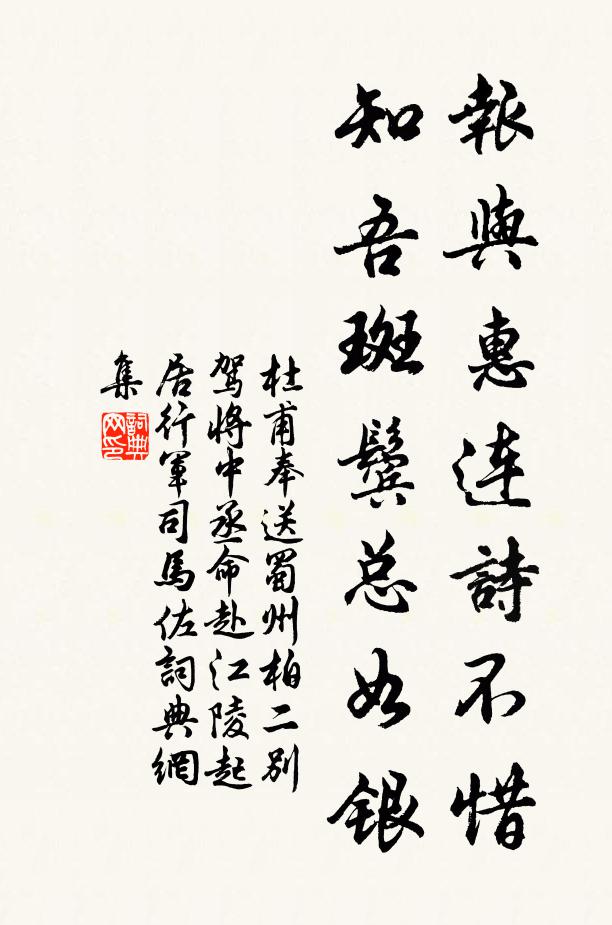 報與惠連詩不惜
知吾斑鬢总如銀
杜甫奉送蜀州柏二别
駕將中丞命赴江陵起
居行軍司馬佐詞典網
集
詞典
网印